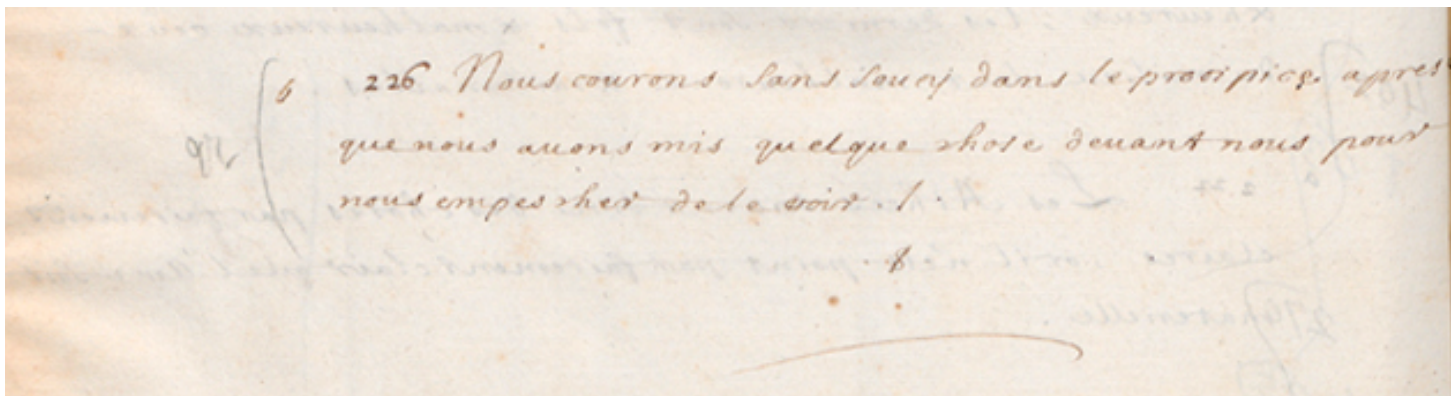 6 226 Nous courons sans soucy dans le precipice apres
que nous auons mis quelque chose deuant nous pour
nous empescher de le voir. /.
8